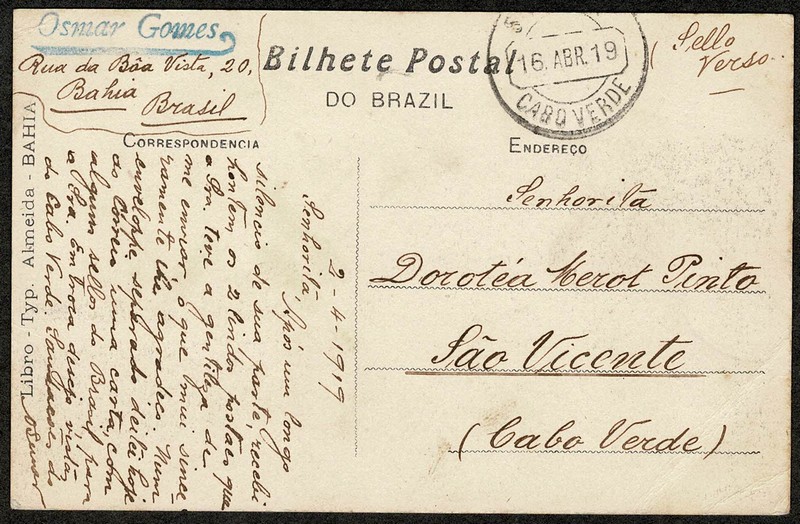 Osmar Gomes
Rua da Bôa Vista, 20,
Bahia
Brasil
Bilhete Postal
DO BRAZIL
16. ABR. 19
CABO VERDE
(Sello
Verso)
CORRESPONDENCIA
ENDEREÇO
2-4-1919
Senhorita,
Após um longo
silencio de sua parte, recebi
hontem os 2 lindos postaes que
a Sra. teve a gentileza de
me enviar, o que mui since
ramente lhe agradeço. Num
enveloppe separado deitei hoje
ao Correio uma carta, com
alguns sellos do Brasil, para
a Sra. Em troca desejo vistas
de Cabo Verde. Saudações do
Osmar
Senhorita
Dorotéa Merot Pinto
São Vicente
(Cabo Verde)
Libro - Typ. Almeida - BAHIA